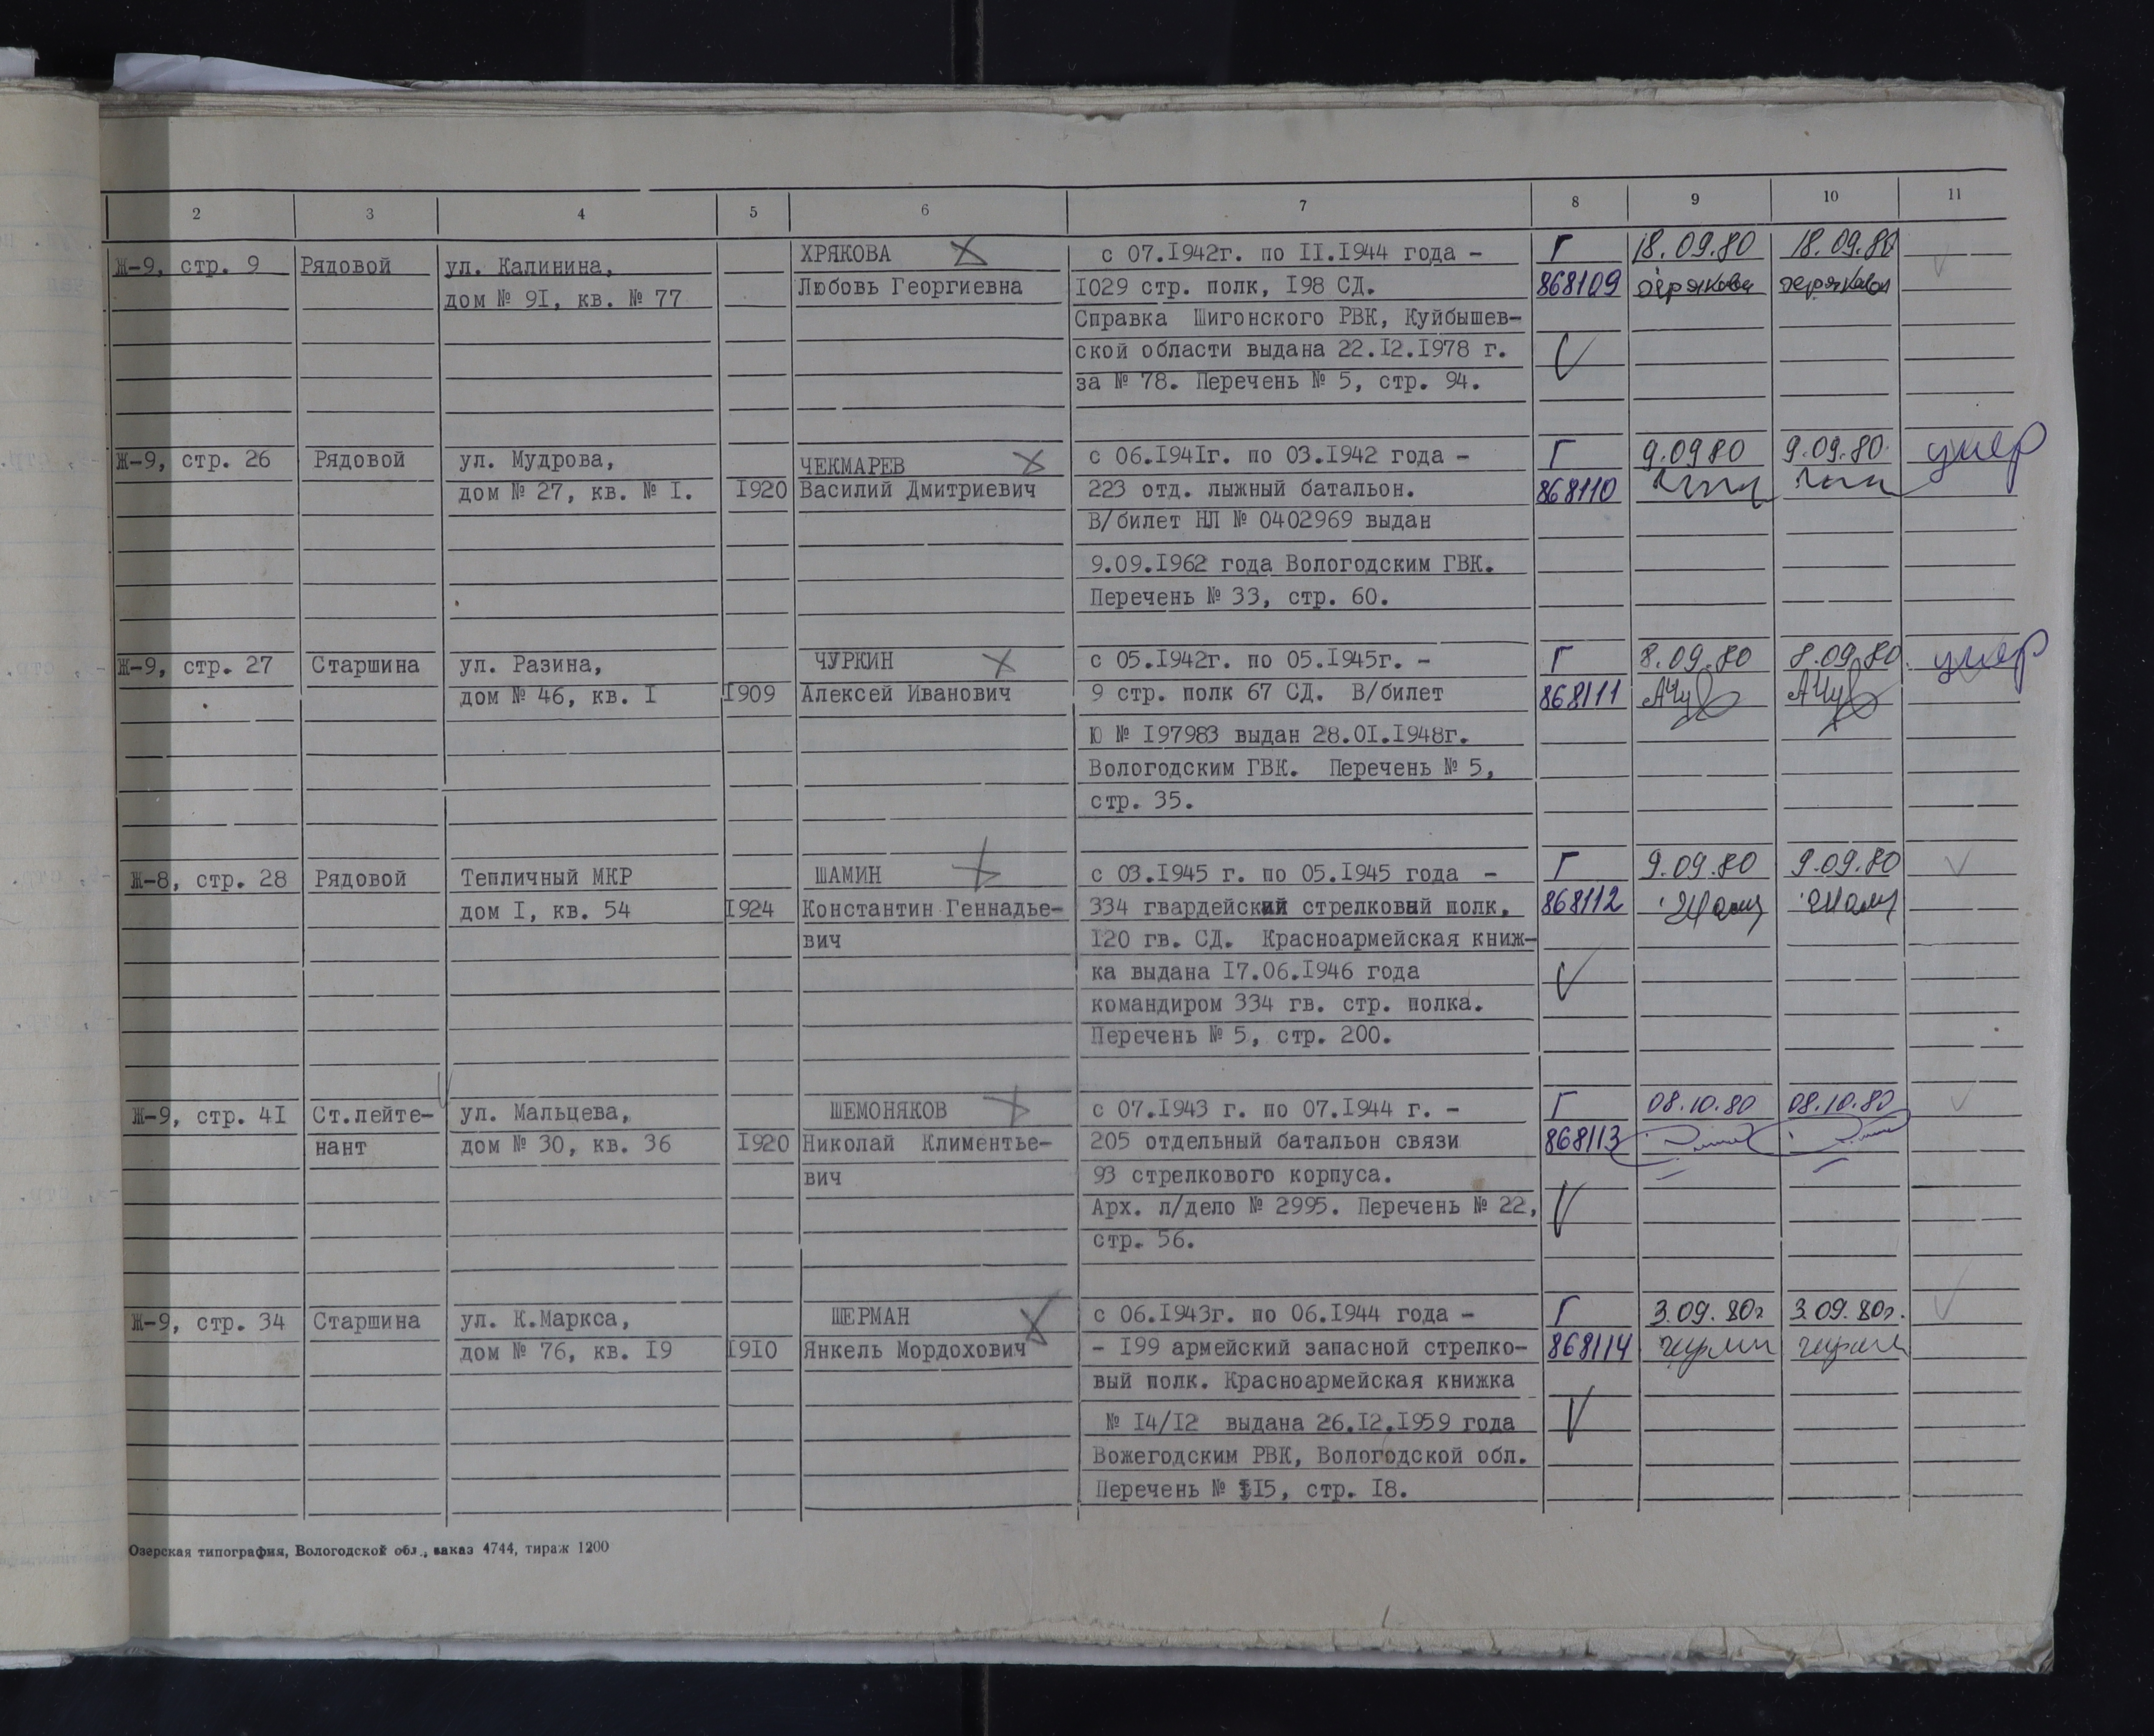 2 3 4 5 6 7 8 9 10 11
Ж-9, стр. 9 Рядовой ул. Калинина, ХРЯКОВА с 07.1942г. по II.1944 года - Г 18.09.80 18.09.80
дом № 9I, кв. № 77 Любовь Георгиевна 1029 стр. полк, I98 СД. 868109 Хрякова Хрякова
Справка Шигонского РВК, Куйбышев-
ской области выдана 22.I2.I978 г.
за № 78. Перечень № 5, стр. 94.
Ж-9, стр. 26 Рядовой ул. Мудрова, ЧЕКМАРЕВ с 06.I94Iг. по 03.I942 года - Г 9.0980 9.09.80. умер
дом № 27, кв. № I. I920 Василий Дмитриевич 223 отд. лыжный батальон. 868110
В/билет НЛ № 0402969 выдан
9.09.I962 года Вологодским ГВК.
Перечень № 33, стр. 60.
Ж-9, стр. 27 Старшина ул. Разина, ЧУРКИН с 05.I942г. по 05.I945г. - Г 8.09.80 8.09.80. умер
дом № 46, кв. I I909 Алексей Иванович 9 стр. полк 67 СД. В/билет 868111
Ю № I97983 выдан 28.0I.I948г.
Вологодским ГВК. Перечень № 5,
стр. 35.
Ж-8, стр. 28 Рядовой Тепличный МКР ШАМИН с 03.I945 г. по 05.I945 года - Г 9.09.80 9.09.80
дом I, кв. 54 I924 Константин Геннадье- 334 гвардейский стрелковый полк, 868112
вич I20 гв. СД. Красноармейская книж-
ка выдана I7.06.I946 года
командиром 334 гв. стр. полка.
Перечень № 5, стр. 200.
Ж-9, стр. 4I Ст.лейте- ул. Мальцева, ШЕМОНЯКОВ с 07.I943 г. по 07.I944 г. - Г 08.10.80 08.10.80
нант дом № 30, кв. 36 I920 Николай Климентье- 205 отдельный батальон связи 868113
вич 93 стрелкового корпуса.
Арх. л/дело № 2995. Перечень № 22,
стр. 56.
Ж-9, стр. 34 Старшина ул. К.Маркса, ШЕРМАН с 06.I943г. по 06.I944 года - Г 3.09.80г 3.09.80г.
дом № 76, кв. I9 I9I0 Янкель Мордохович - I99 армейский запасной стрелко- 868114
вый полк. Красноармейская книжка
№ I4/I2 выдана 26.I2.I959 года
Вожегодским РВК, Вологодской обл.
Перечень № II5, стр. I8.
Озерская типография, Вологодской обл., заказ 4744, тираж 1200